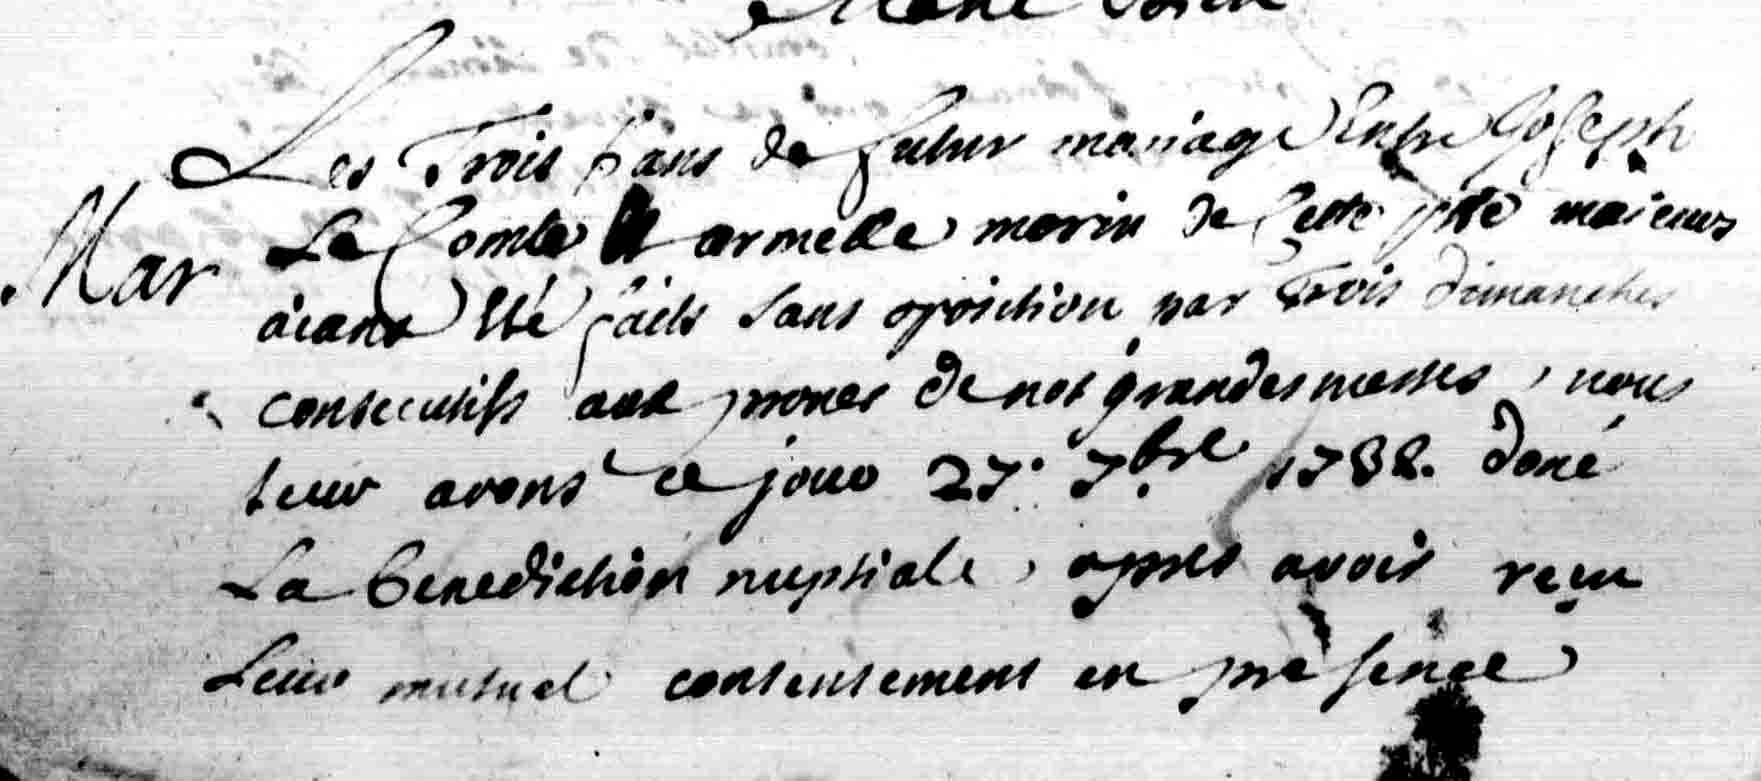 Les Trois bans de futur mariage Entre Joseph
Mar
Le Comte Et armelle morin de Cette psse maieurs
aiant Eté faits sans oposition par Trois dimanches
consecutifs aux prones de nos grandes messes, nous
leur avons ce jour 27. 7bre 1788. doné
La benediction nuptiale, apres avoir reçu
Leur mutuel consentement en presence